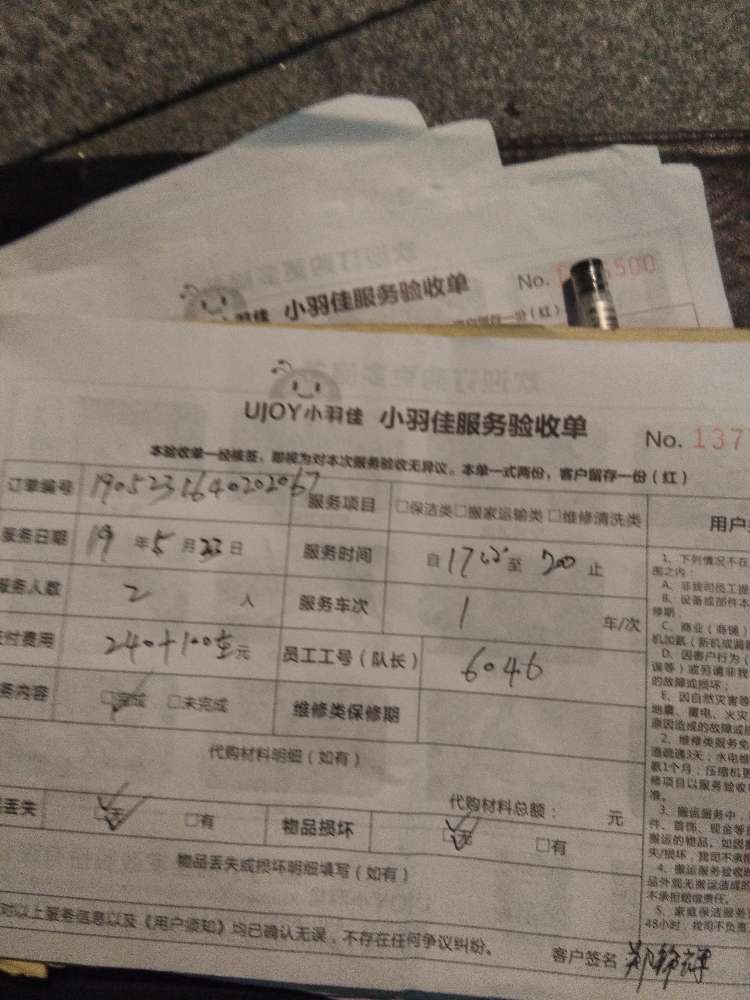 小羽佳服务验收单
No.
500
UJOY小羽佳 小羽佳服务验收单 No. 137
本验收单一经核签，即视为对本次服务验收无异议。本单一式两份，客户留存一份（红）
订单编号 190523164020206
服务项目 □保洁类□搬家运输类 □维修清洗类
服务日期 19 年 5 月 23 日
服务时间 自 至 止
服务人数 2 人
服务车次 1 车/次
付费用 240+100 元
员工工号（队长） 6046
务内容 □完成 □未完成
维修类保修期
代购材料明细（如有）
代购材料总额： 元
丢失 □无 □有
物品损坏 □无 □有
物品丢失或损坏明细填写（如有）
对以上服务信息以及《用户须知》均已确认无误，不存在任何争议纠纷。
客户签名
用户
1、下列情况不在
围之内：
A、非我司员工
B、设备或部件本
修期
C、商业（商铺）
机加氟（新机或漏
D、因客户行为（
误等）或另请非我
的故障或损坏；
E、因自然灾害等
地震、雷电、火灾
原因造成的故障或
2、维修类服务免
道疏通3天；水电维
氟1个月；压缩机更
修项目以服务验收
准。
3、搬运服务中，
件、首饰、现金等
搬运的物品，如因
失/损坏，我司不承
4、搬运服务验收
品外观无搬运造成的
不承担赔偿责任。
5、家庭保洁服务
48小时，我司不负责